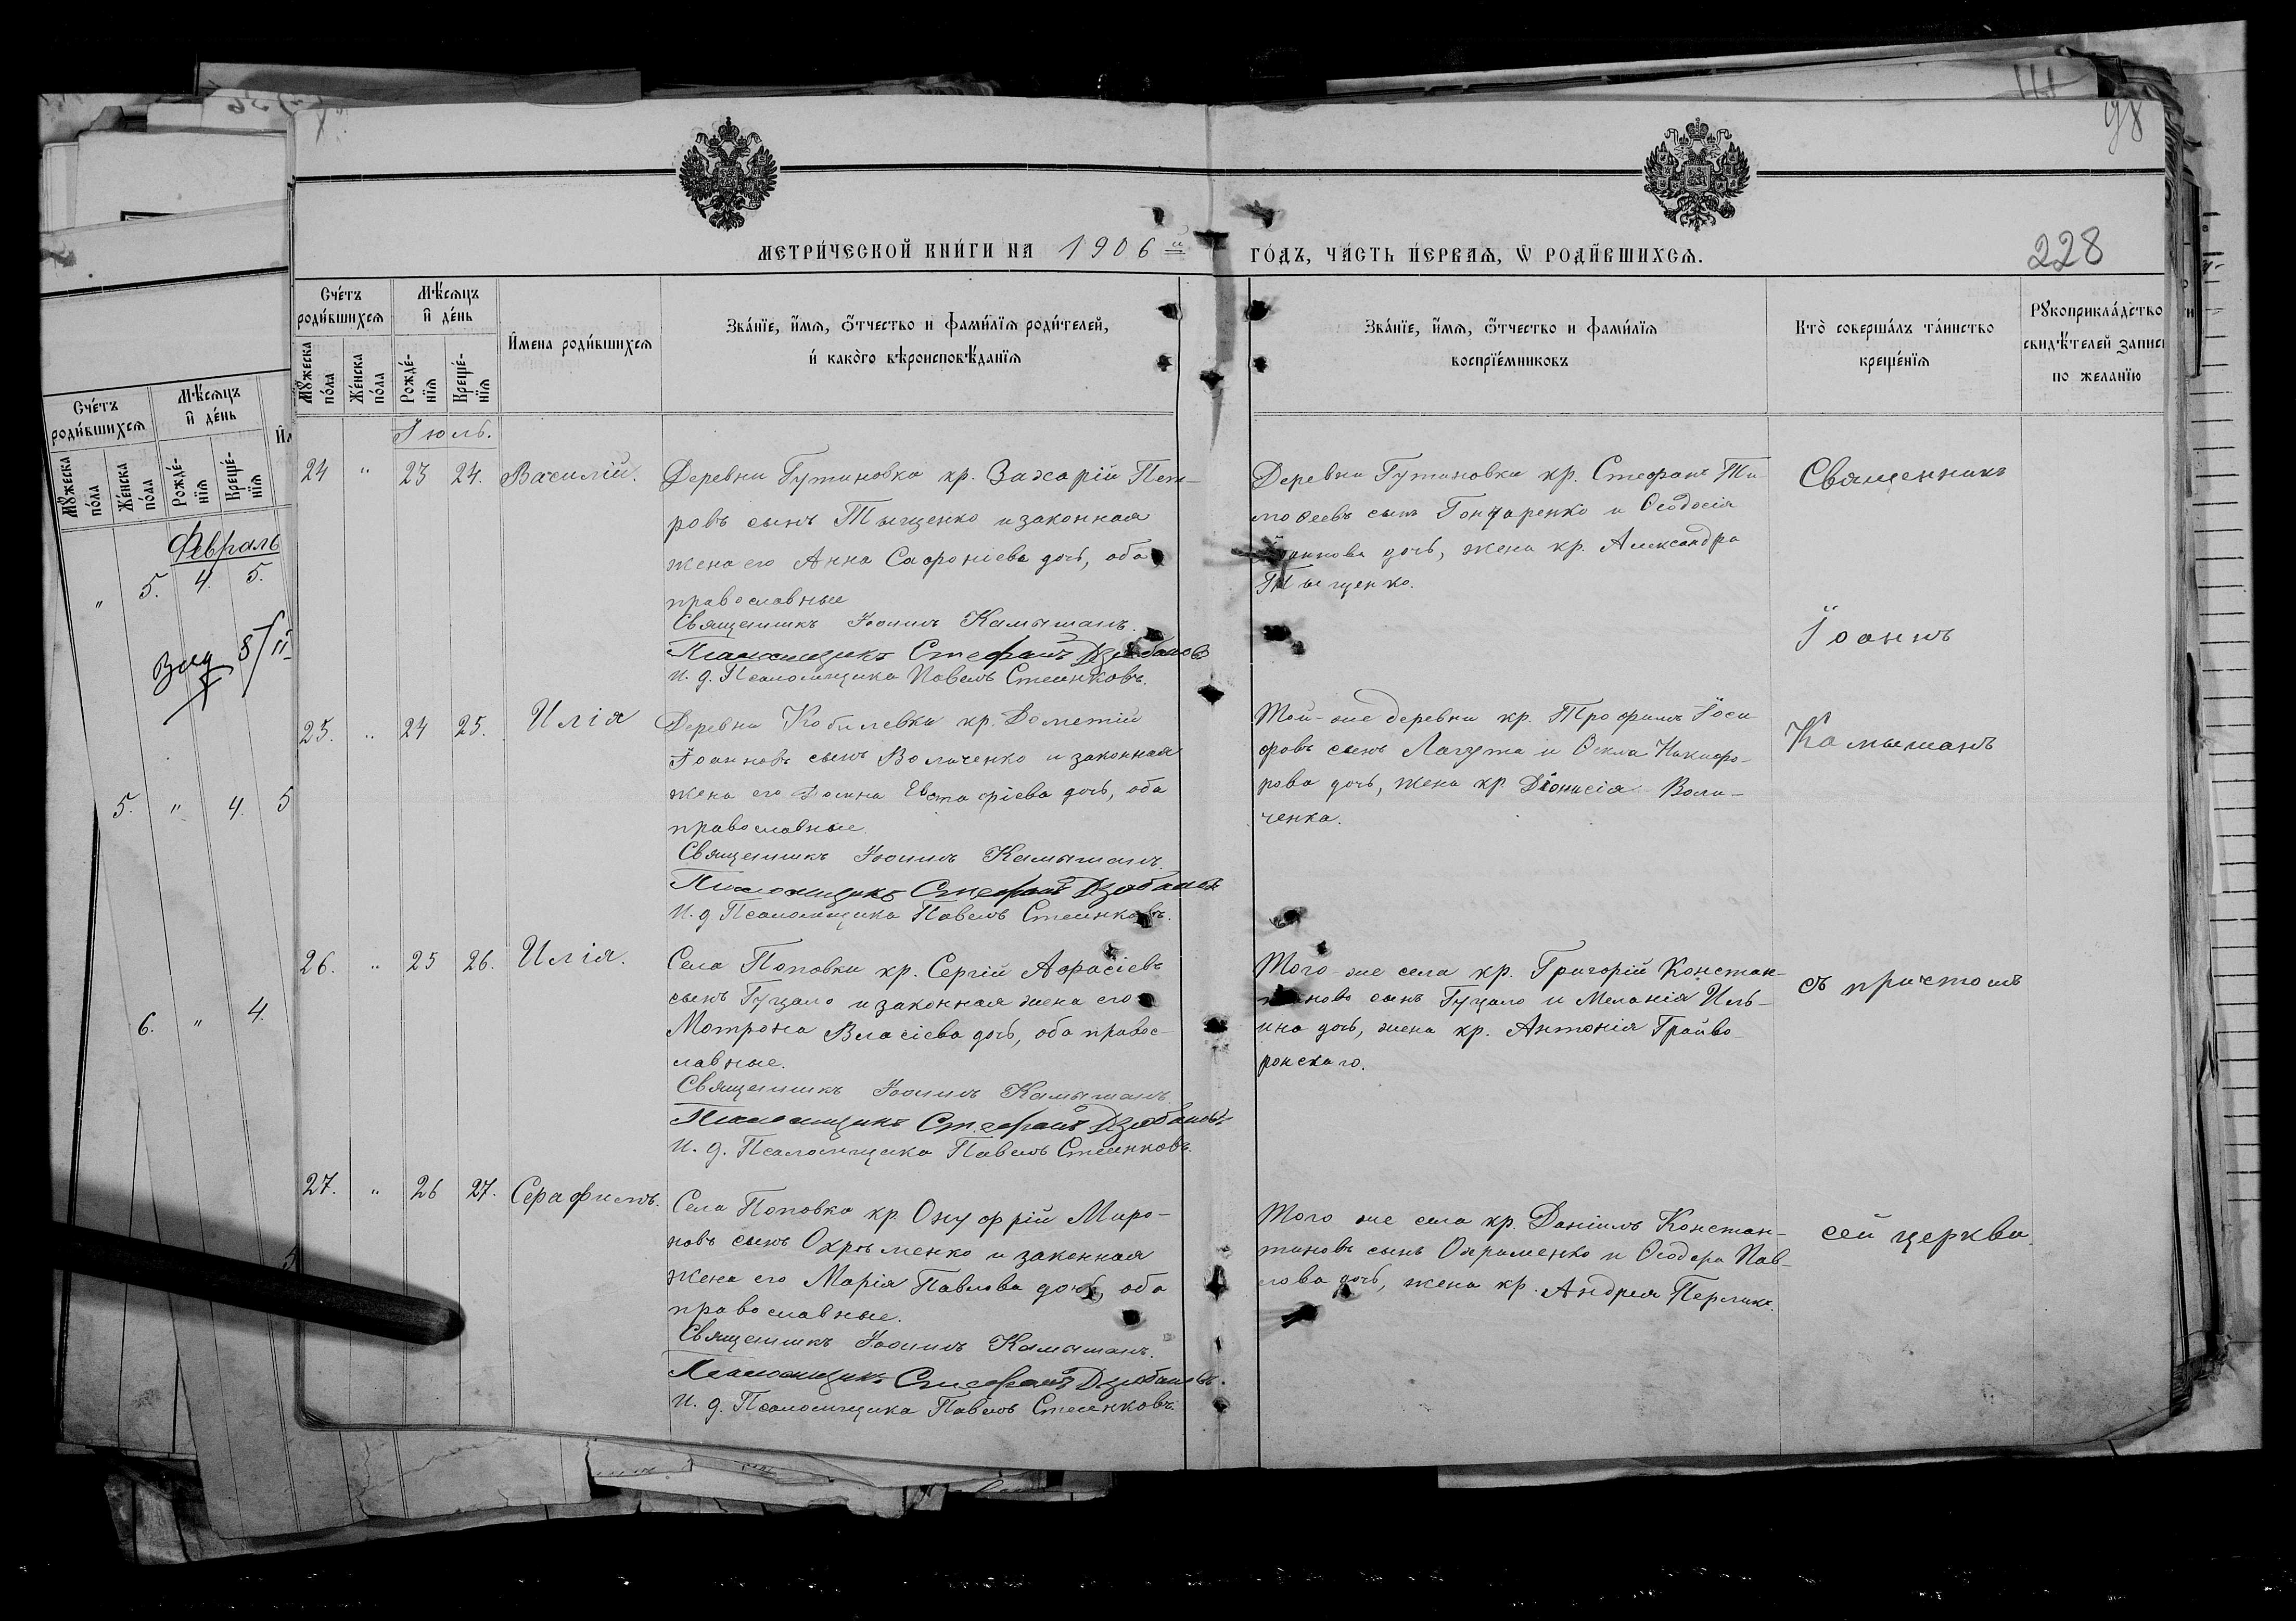 98
МЕТРИ́ЧЕСКОЙ КНИ́ГИ НА 1906 й ГО́ДЪ, ЧА́СТЬ ПЕ́РВАЯ, Ѡ РОДИ́ВШИХСЯ.
228
Сче́тъ роди́вшихся
Мѣ́сяцъ и де́нь
Имена роди́вшихся
Зва́нїе, и́мя, о́тчество и фами́лїя роди́телей,
и како́го вѣроисповѣ́данїя
Зва́нїе, и́мя, о́тчество и фами́лїя
воспрїе́мниковъ
Кто̀ соверша́лъ та́инство
креще́нїя
Рукоприкла́дство
свидѣ́телей записи
по желанїю
Мужеска по́ла
Же́нска по́ла
Рожде́нїя
Креще́нїя
Іюль.
24 " 23 24. Василій.
Деревни Гутиновки кр. Захарій Пет-
ровъ сынъ Тыщенко и законная
жена его Анна Сафоніева дочь, оба
православные
Священникъ Іоаннъ Камышанъ.
Псаломщикъ Стефанъ Дзюбановъ
И. д. Псаломщика Павелъ Стеенковъ.
Деревни Гутиновки кр. Стефанъ Ти-
моѳеевъ сынъ Гончаренко и Ѳеодосія
дочь, жена кр. Александра
Тыщенко.
Священникъ
Іоаннъ
Камышанъ
съ причтомъ
сей церкви.
25. " 24 25. Илія
Деревни Кобилевки кр. Дометій
Іоанновъ сынъ Воличенко и законная
жена его Евстафіева дочь, оба
православные.
Священникъ Іоаннъ Камышанъ.
Псаломщикъ Стефанъ Дзюбановъ
И. д. Псаломщика Павелъ Стеенковъ.
Той-же деревни кр. Трофимъ Іоси-
фовъ сынъ Лагута и Ѳекла Никифо-
рова дочь, жена кр. Діонисія Воли-
ченка.
26. " 25 26. Илія.
Села Поповки кр. Сергій Аѳанасіевъ
сынъ Гуцало и законная жена его
Матрона Власіева дочь, оба правос-
лавные.
Священникъ Іоаннъ Камышанъ.
Псаломщикъ Стефанъ Дзюбановъ
И. д. Псаломщика Павелъ Стеенковъ.
Того же села кр. Григорій Констан-
тиновъ сынъ Гуцало и Меланія Иль-
ина дочь, жена кр. Антонія Грайво-
ронскаго.
27. " 26 27. Серафимъ.
Села Поповки кр. Онуфрій Миро-
новъ сынъ Охрѣменко и законная
жена его Марія Павлова дочь, оба
православные.
Священникъ Іоаннъ Камышанъ.
Псаломщикъ Стефанъ Дзюбановъ.
И. д. Псаломщика Павелъ Стеенковъ.
Того же села кр. Даніилъ Констан-
тиновъ сынъ Охрименко и Ѳеодора Пав-
лова дочь, жена кр. Андрея Перлика.
Сче́тъ роди́вшихся
Мѣ́сяцъ и де́нь
Мужеска по́ла
Же́нска по́ла
Рожде́нїя
Креще́нїя
Февраль
" 5. 4. 5.
5. " 4. 5
6. " 4.